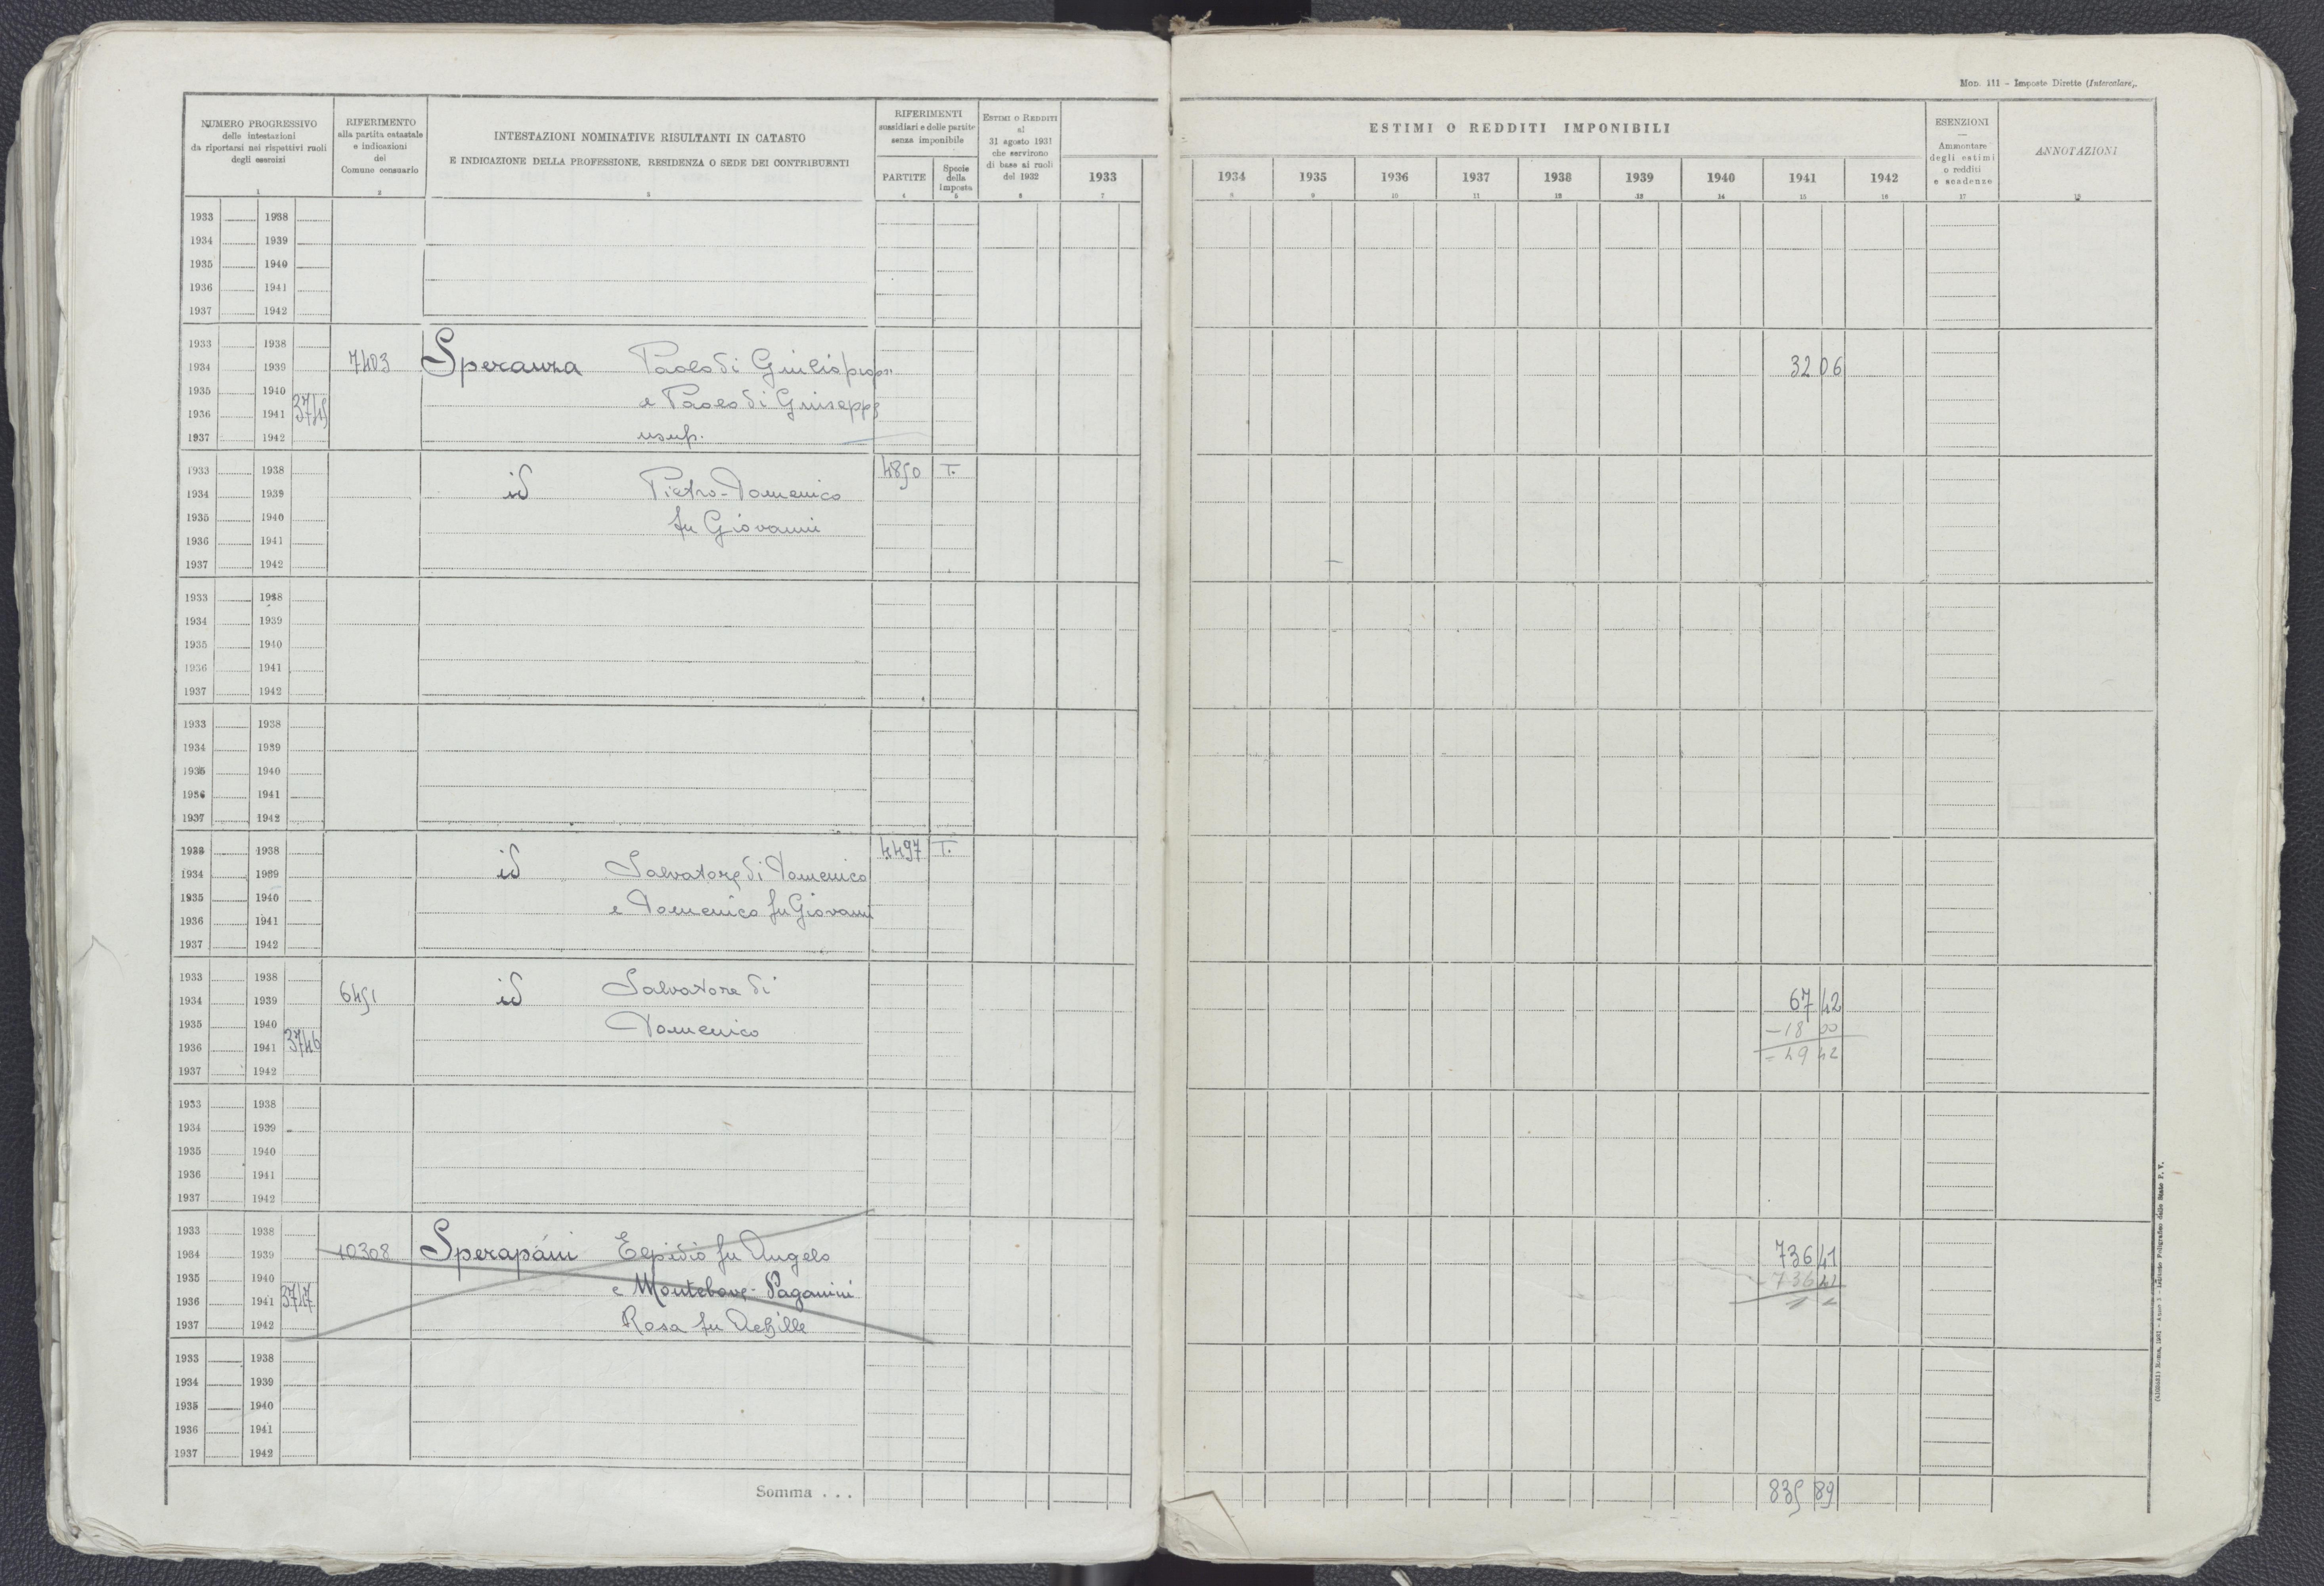 MOD. 111 - Imposte Dirette (Intercalare).
NUMERO PROGRESSIVO
delle intestazioni
da riportarsi nei rispettivi ruoli
degli esercizi
1
RIFERIMENTO
alla partita catastale
e indicazioni
del
Comune censuario
2
INTESTAZIONI NOMINATIVE RISULTANTI IN CATASTO
E INDICAZIONE DELLA PROFESSIONE, RESIDENZA O SEDE DEI CONTRIBUENTI
3
RIFERIMENTI
sussidiari e delle partite
senza imponibile
PARTITE
4
Specie
della
Imposta
5
ESTIMI O REDDITI
al
31 agosto 1931
che servirono
di base ai ruoli
del 1932
6
1933
7
ESTIMI O REDDITI IMPONIBILI
1934 1935 1936 1937 1938 1939 1940 1941 1942
8 9 10 11 12 13 14 15 16
ESENZIONI
—
Ammontare
degli estimi
o redditi
e scadenze
17
ANNOTAZIONI
18
1933 1938
1934 1939
1935 1940
1936 1941
1937 1942
1933 1938
1934 1939 7403 Speranza Paolo di Giulio propr. 32 06
1935 1940
1936 1941 3745 e Paolo di Giuseppe
1937 1942 usuf.
1933 1938 4850 T.
1934 1939 id Pietro-Domenico
1935 1940 fu Giovanni
1936 1941
1937 1942
1933 1938
1934 1939
1935 1940
1936 1941
1937 1942
1933 1938
1934 1939
1935 1940
1936 1941
1937 1942
1933 1938 4497 T.
1934 1939 id Salvatore di Domenico
1935 1940
1936 1941 e Domenico fu Giovanni
1937 1942
1933 1938
1934 1939 6451 id Salvatore di 67 42
1935 1940 Domenico - 18 00
1936 1941 3746 = 49 42
1937 1942
1933 1938
1934 1939
1935 1940
1936 1941
1937 1942
1933 1938
1934 1939 10308 Sperapani Elpidio fu Angelo 736 41
1935 1940 - 736 41
1936 1941 3747 e Montebove-Paganini
1937 1942 Rosa fu Achille
1933 1938
1934 1939
1935 1940
1936 1941
1937 1942
Somma . . . 835 89